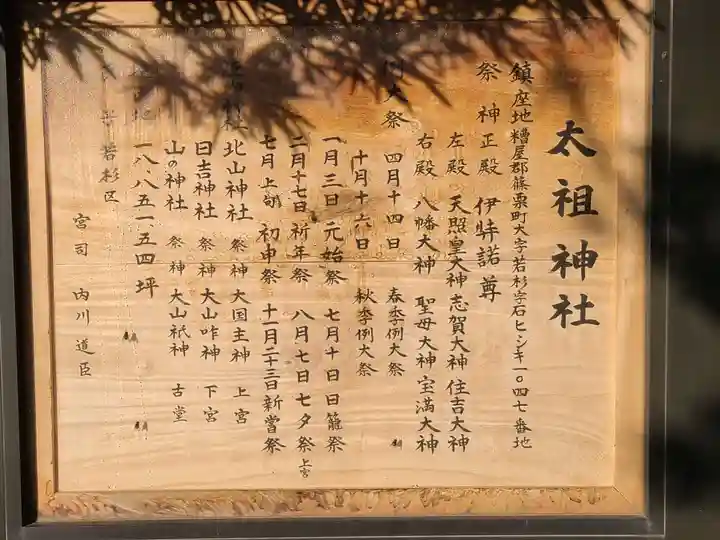 太祖神社
鎮座地 糟屋郡篠栗町大字若杉字石ヒシキ一〇四七番地
祭神 正殿 伊弉諾尊
左殿 天照皇大神 志賀大神 住吉大神
右殿 八幡大神 聖母大神 宝満大神
例大祭 四月十四日 春季例大祭
十月十六日 秋季例大祭
一月三日 元始祭 七月十日 日籠祭
二月十七日 祈年祭 八月七日 七夕祭 上宮
七月上旬 初申祭 十一月二十三日 新嘗祭
神社 北山神社 祭神 大国主神 上宮
日吉神社 祭神 大山咋神 下宮
山の神社 祭神 大山祇神 古堂
地 一八.八五一.五四坪
若杉区
宮司 内川道臣